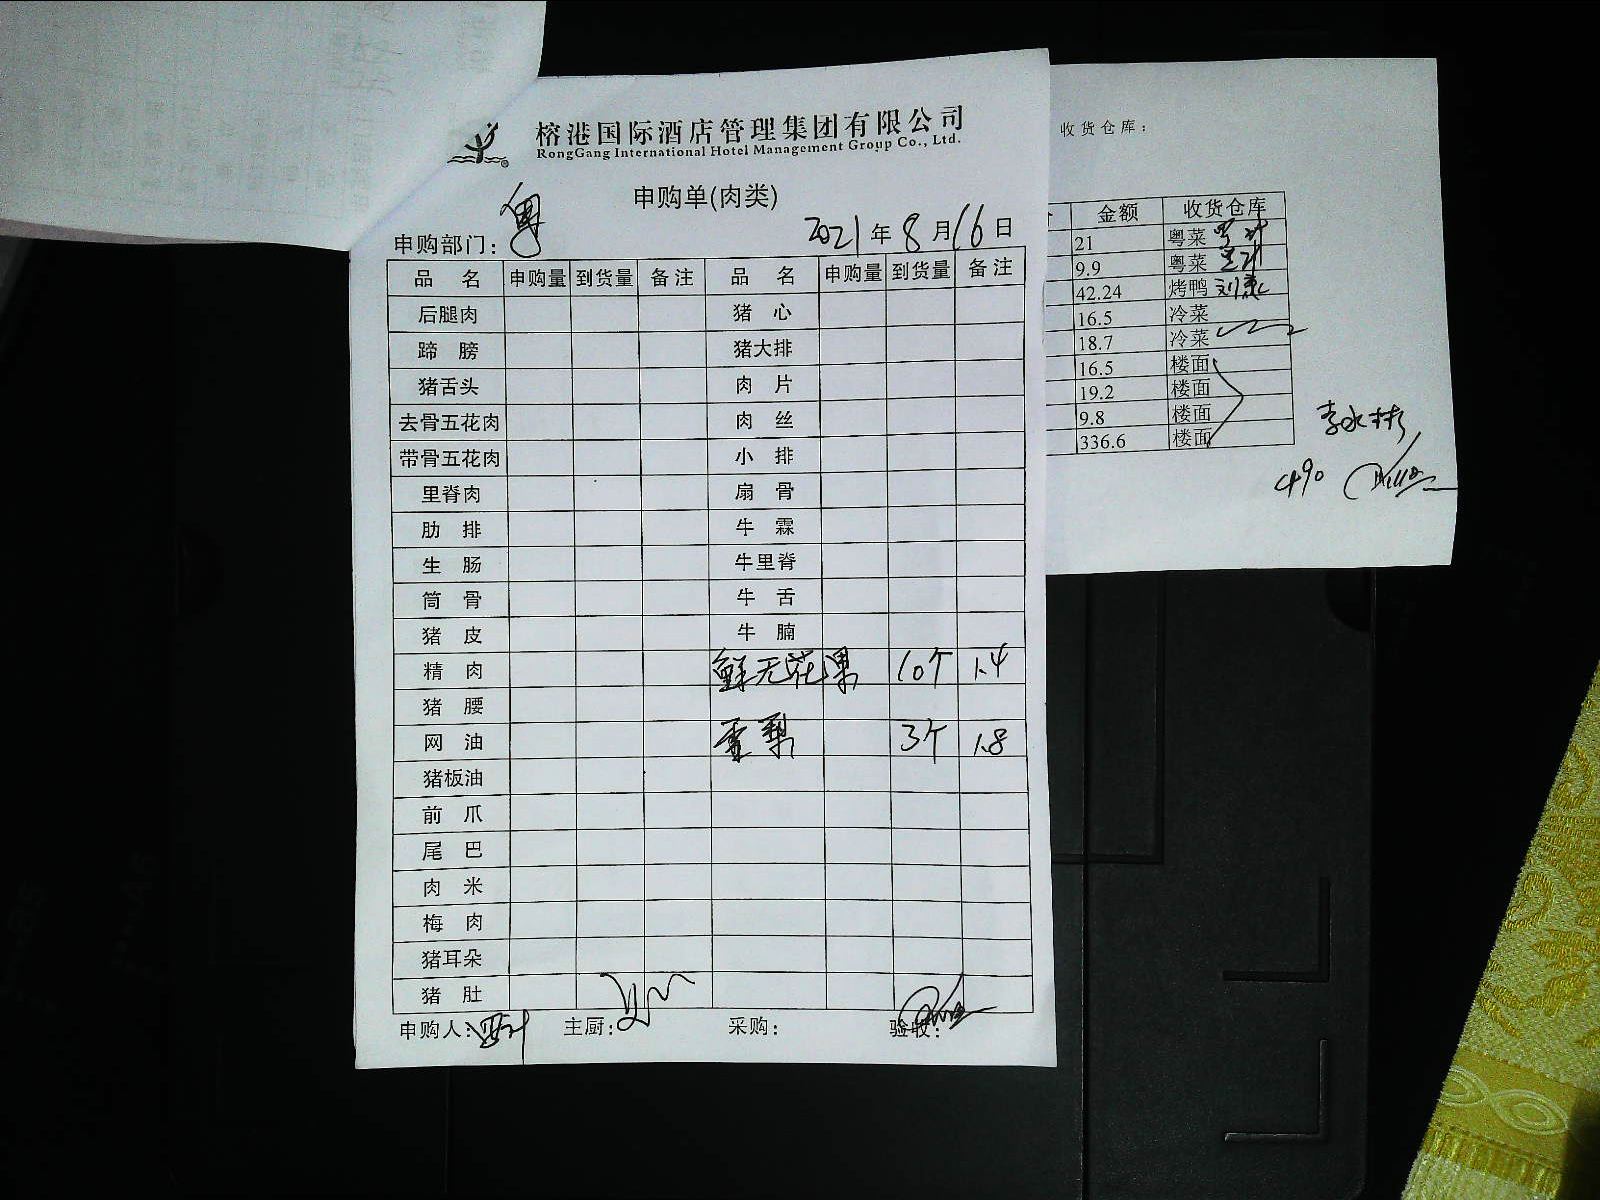 榕港国际酒店管理集团有限公司
RongGang International Hotel Management Group Co., Ltd.
申购单(肉类)
申购部门: 粤 2021 年 8 月 16 日
品 名 申购量 到货量 备注 品 名 申购量 到货量 备注
后腿肉 猪 心
蹄 膀 猪大排
猪舌头 肉 片
去骨五花肉 肉 丝
带骨五花肉 小 排
里脊肉 扇 骨
肋 排 牛 霖
生 肠 牛里脊
筒 骨 牛 舌
猪 皮 牛 腩
精 肉 鲜无花果 10个 1.4
猪 腰
网 油 雪梨 3个 1.8
猪板油
前 爪
尾 巴
肉 米
梅 肉
猪耳朵
猪 肚
申购人: 主厨: 采购: 验收:
收货仓库:
金额 收货仓库
21 粤菜
9.9 粤菜
42.24 烤鸭
16.5 冷菜
18.7 冷菜
16.5 楼面
19.2 楼面
9.8 楼面
336.6 楼面
李水彬
490